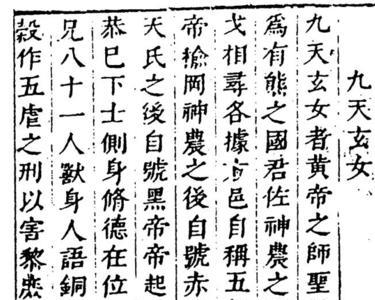 九天玄女
九天玄女者黄帝之師聖
爲有熊之國君佐神農之
戈相尋各據方邑自稱五
帝揄岡神農之後自號赤
天氏之後自號黑帝帝起
恭已下士側身脩德在位
兄八十一人獸身人語銅
穀作五虐之刑以害黎庶